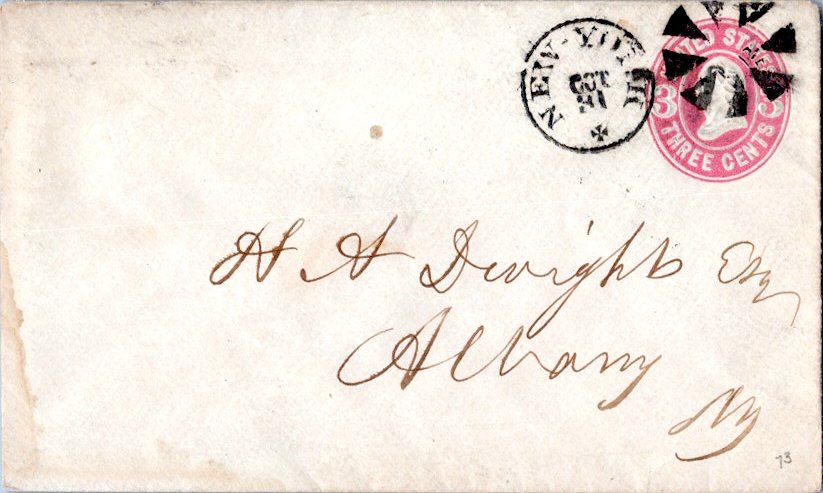 NEW-YORK
OCT
31
UNITED STATES
3 3
THREE CENTS
H A Dwight Esq
Albany
NY
73